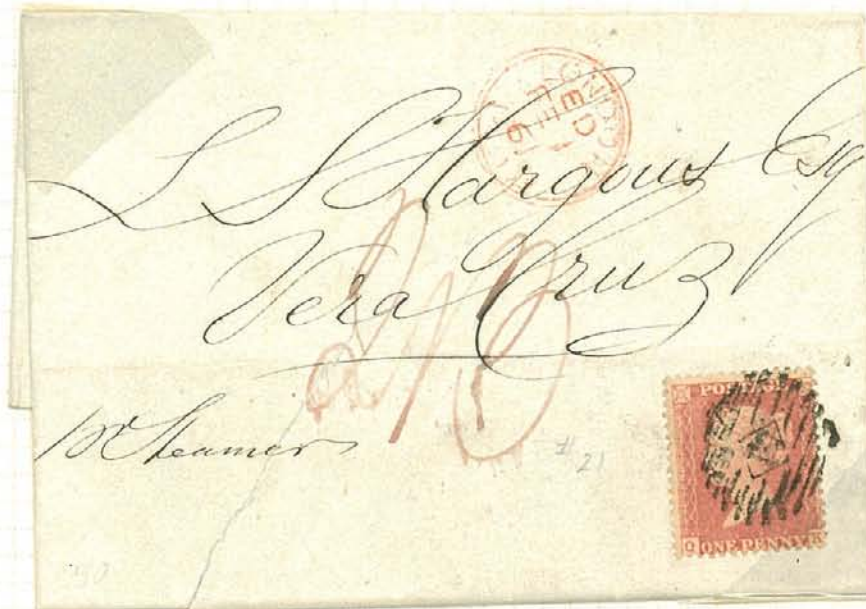 LONDON
L S Hargous Esq
Vera Cruz
pr Steamer
# 21
POSTAGE
ONE PENNY